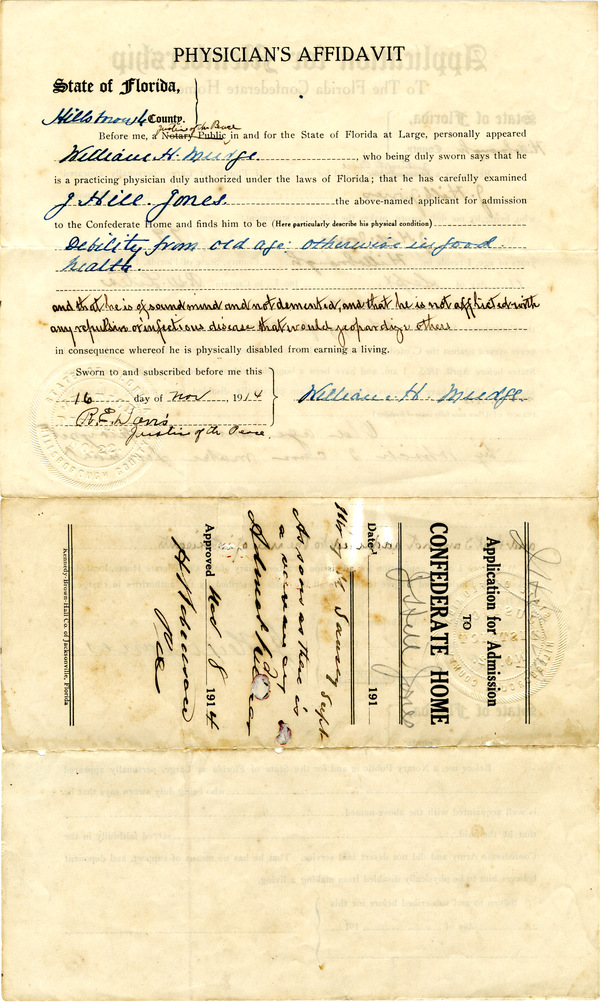 PHYSICIAN'S AFFIDAVIT
State of Florida,
Hillsborough County.
Justice of the Peace
Before me, a Notary Public in and for the State of Florida at Large, personally appeared
William H. Mudge, who being duly sworn says that he
is a practicing physician duly authorized under the laws of Florida; that he has carefully examined
J. Hill Jones the above-named applicant for admission
to the Confederate Home and finds him to be (Here particularly describe his physical condition)
Debility from old age: otherwise in good
health.
and that he is of sound mind and not demented, and that he is not afflicted with
any repulsive or infectious disease that would jeopardize others
in consequence whereof he is physically disabled from earning a living.
Sworn to and subscribed before me this
16 day of Nov, 1914
William H. Mudge
R. E. Davis
Justice of the Peace.
J Hill Jones
Application for Admission
TO
CONFEDERATE HOME
J Hill Jones
Date 191
Sept
As soon as there is
a vacancy
Admit
Approved Nov 8 1914
Pre
Kennedy-Brown-Hall Co. of Jacksonville, Florida